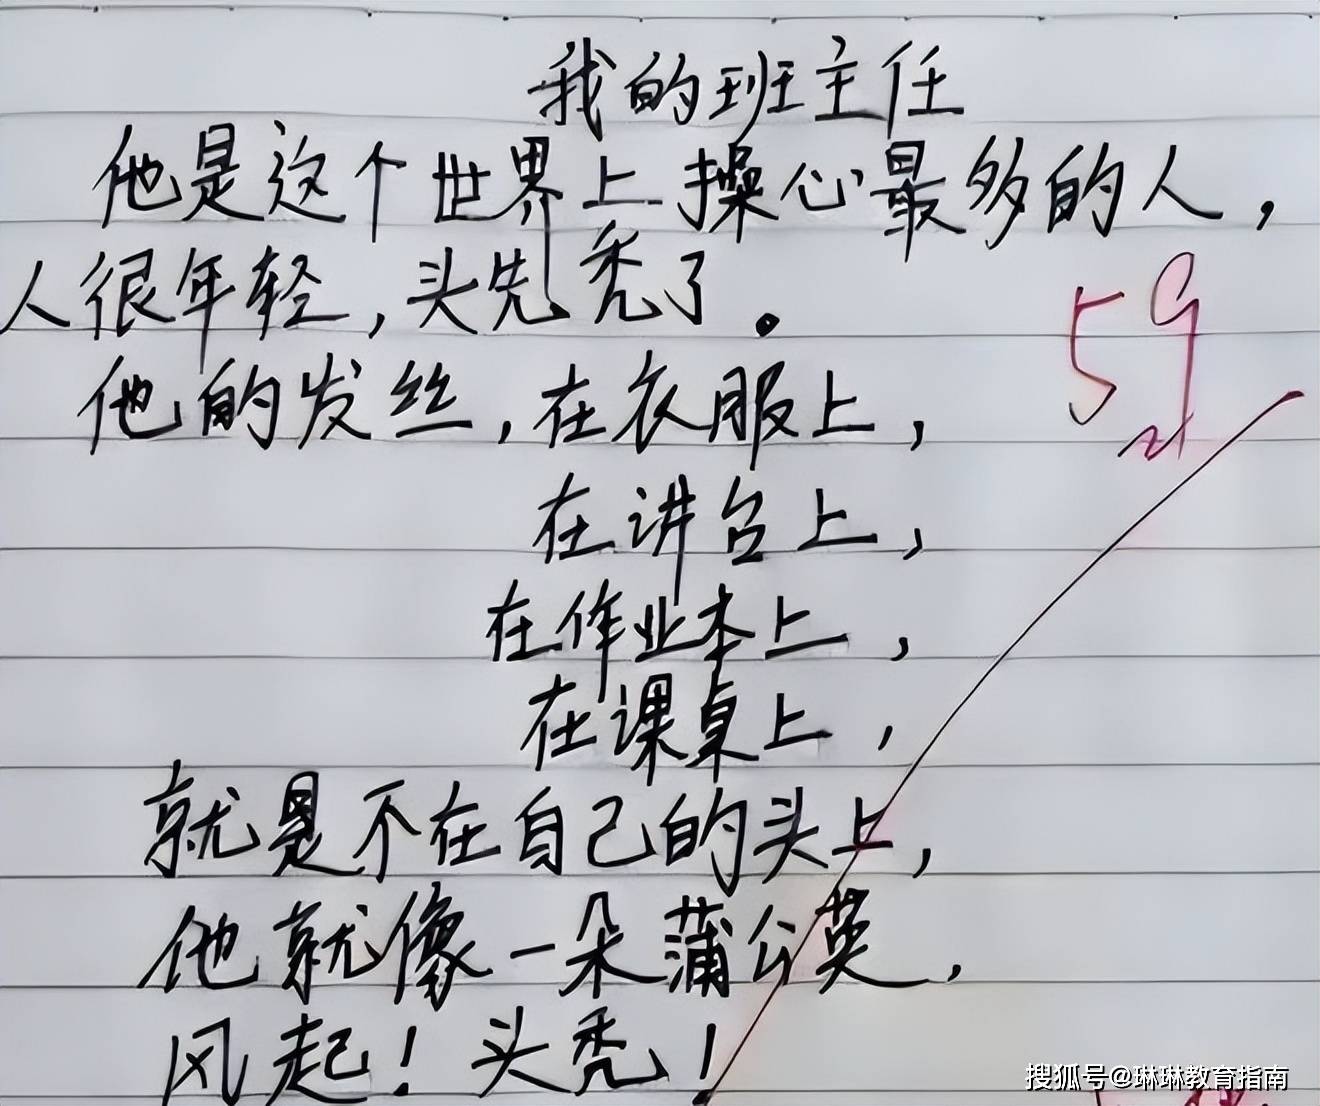 我的班主任
他是这个世界上操心最多的人，
人很年轻，头先秃了。
他的发丝，在衣服上，
59
在讲台上，
在作业本上，
在课桌上，
就是不在自己的头上，
他就像一朵蒲公英，
风起！头秃！
搜狐号@琳琳教育指南